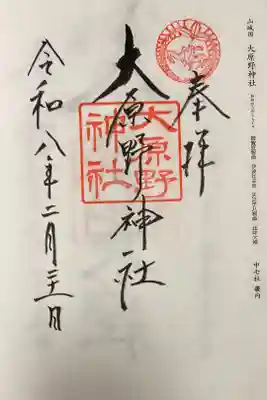 山城国 大原野神社
中七社 畿内
奉拝
大原野神社
大原野
神社
令和八年二月二十一日